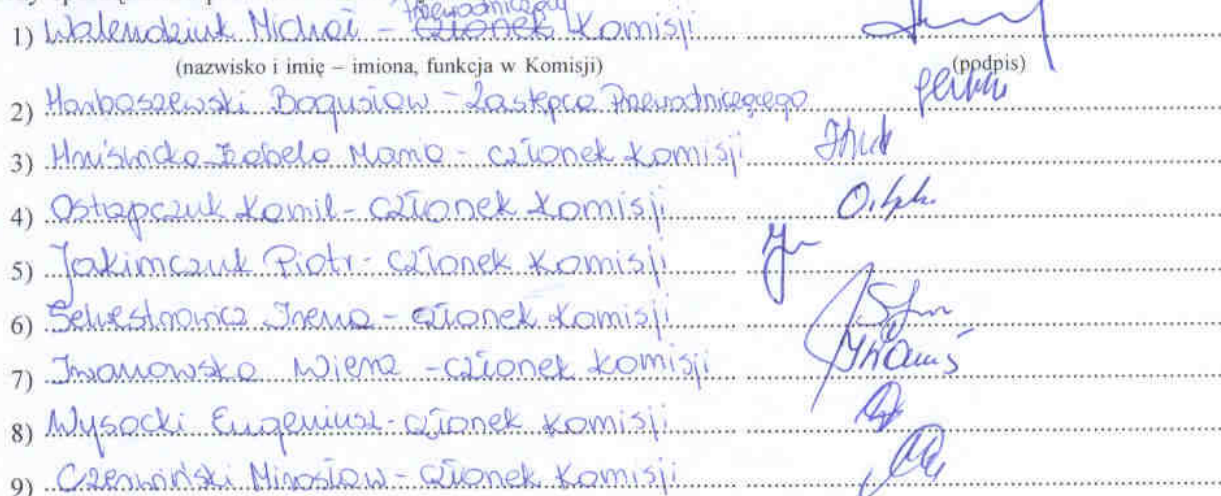 Przewodniczący
1) Walendziuk Michał - członek Komisji
(nazwisko i imię – imiona, funkcja w Komisji) (podpis)
2) Harbaszewski Bogusław - Zastępca Przewodniczącego
3) Izabela Maria - członek Komisji
4) Ostapczuk Kamil - członek Komisji
5) Jakimczuk Piotr - członek Komisji
6) Irena - członek Komisji
7) Iwanowska - członek Komisji
8) Wysocki Eugeniusz - członek Komisji
9) Czerwiński Mirosław - członek Komisji